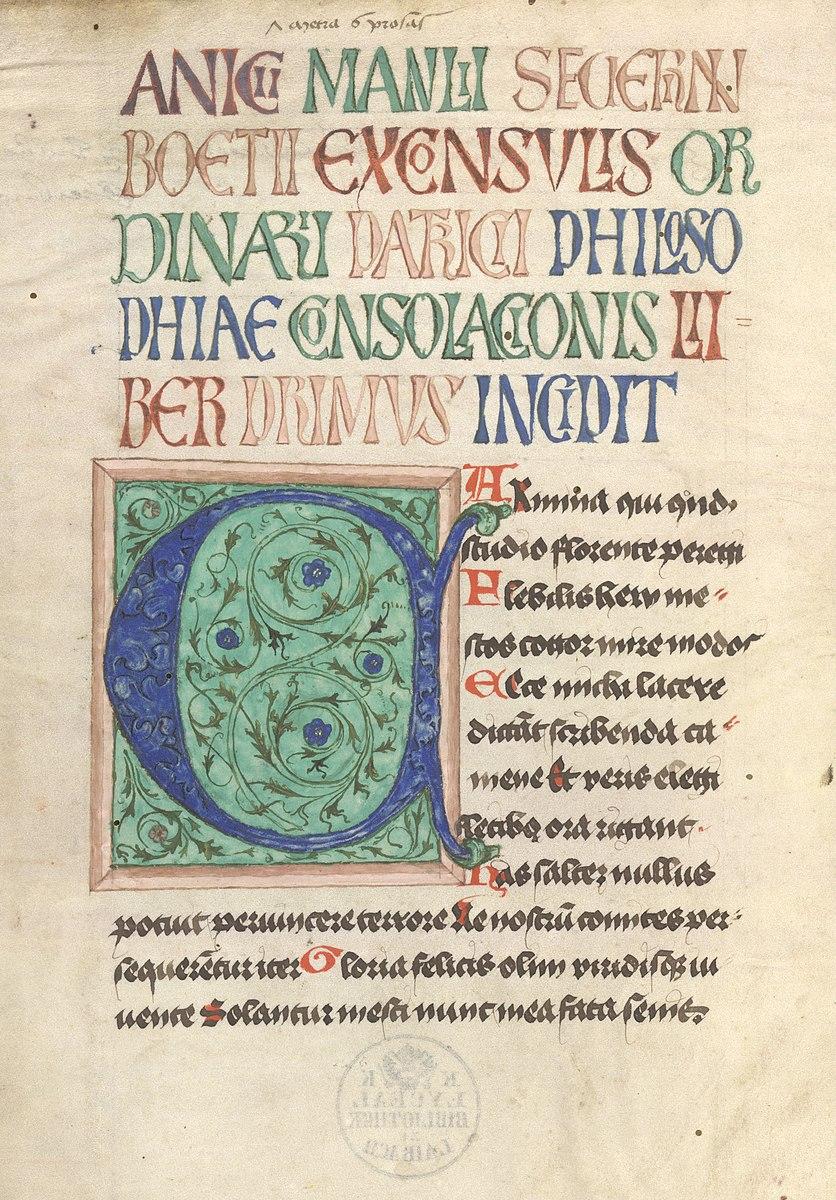 7 metra 6 prosas
ANICII MANLII SEVERINI
BOETII EXCONSULIS OR
DINARII PATRICII PHILOSO
PHIAE CONSOLACIONIS LI=
BER PRIMUS INCIPIT
CARmina qui qnd.
studio florente peregi
Flebilis heu me-
stos cogor inire modos
Ecce michi lacere
dictãt scribenda ca-
mene Et veris elegi
fletibꝫ ora rigant.
has saltez nullus
potuit pervincere terrore Ne nostrũ comites per-
sequerẽtur iter Gloria felicis olim viridisqꝫ iu
vente Solantur mesti nunc mea fata senis.
K K
LYCEAL
BIBLIOTHEK
ZU
LAIBACH